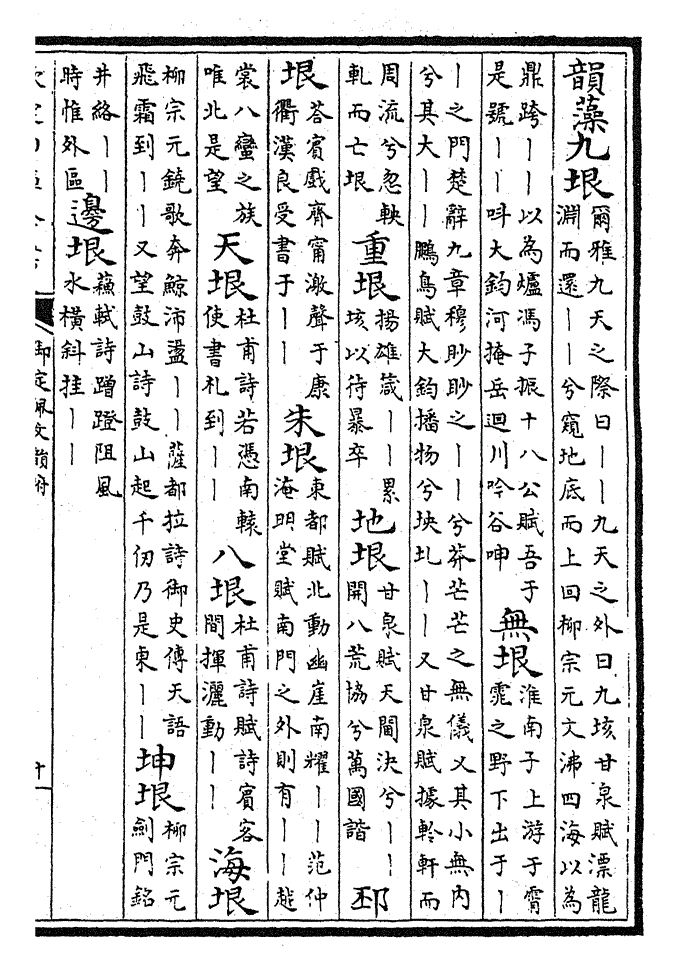 韻藻九垠爾雅九天之際曰丨丨九天之外曰九垓甘泉賦漂龍淵而還丨丨兮窺地底而上回柳宗元文沸四海以為
鼎跨丨丨以為爐馮子振十八公賦吾于是號丨丨呌大鈞河掩岳迴川吟谷呻無垠淮南子上游于霄雿之野下出于丨
丨之門楚辭九章穆眇眇之丨丨兮莽芒芒之無儀又其小無内兮其大丨丨鵬鳥賦大鈞播物兮坱圠丨丨又甘泉賦據軨軒而
周流兮忽軮軋而亡垠重垠揚雄箴丨丨累垓以待暴卒地垠甘泉賦天閫決兮丨丨開八荒協兮萬國諧邳
垠荅賓戲齊甯激聲于康衢漢良受書于丨丨朱垠東都賦北動幽崖南耀丨丨范仲淹明堂賦南門之外則有丨丨越
裳八蠻之族唯北是望天垠杜甫詩若憑南轅使書札到丨丨八垠杜甫詩賦詩賓客間揮灑動丨丨海垠
柳宗元鐃歌奔鯨沛盪丨丨薩都拉詩御史傳天語飛霜到丨丨又望鼓山詩鼓山起千仞乃是東丨丨坤垠柳宗元劍門銘
井絡丨丨時惟外區邊垠蘇軾詩蹭蹬阻風水橫斜挂丨丨
御定佩文韻府